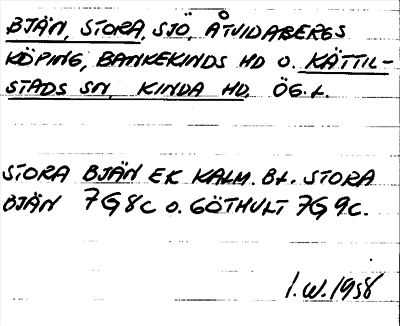 BJÄN, STORA, SJÖ, ÅTVIDABERGS
KÖPING, BANKEKINDS HD O. KÄTTIL-
STADS SN, KINDA HD. ÖG. L.
STORA BJÄN EK KALM. BL. STORA
BJÄN 7G 8C O. GÖTHULT 7G 9C.
I.W. 1958